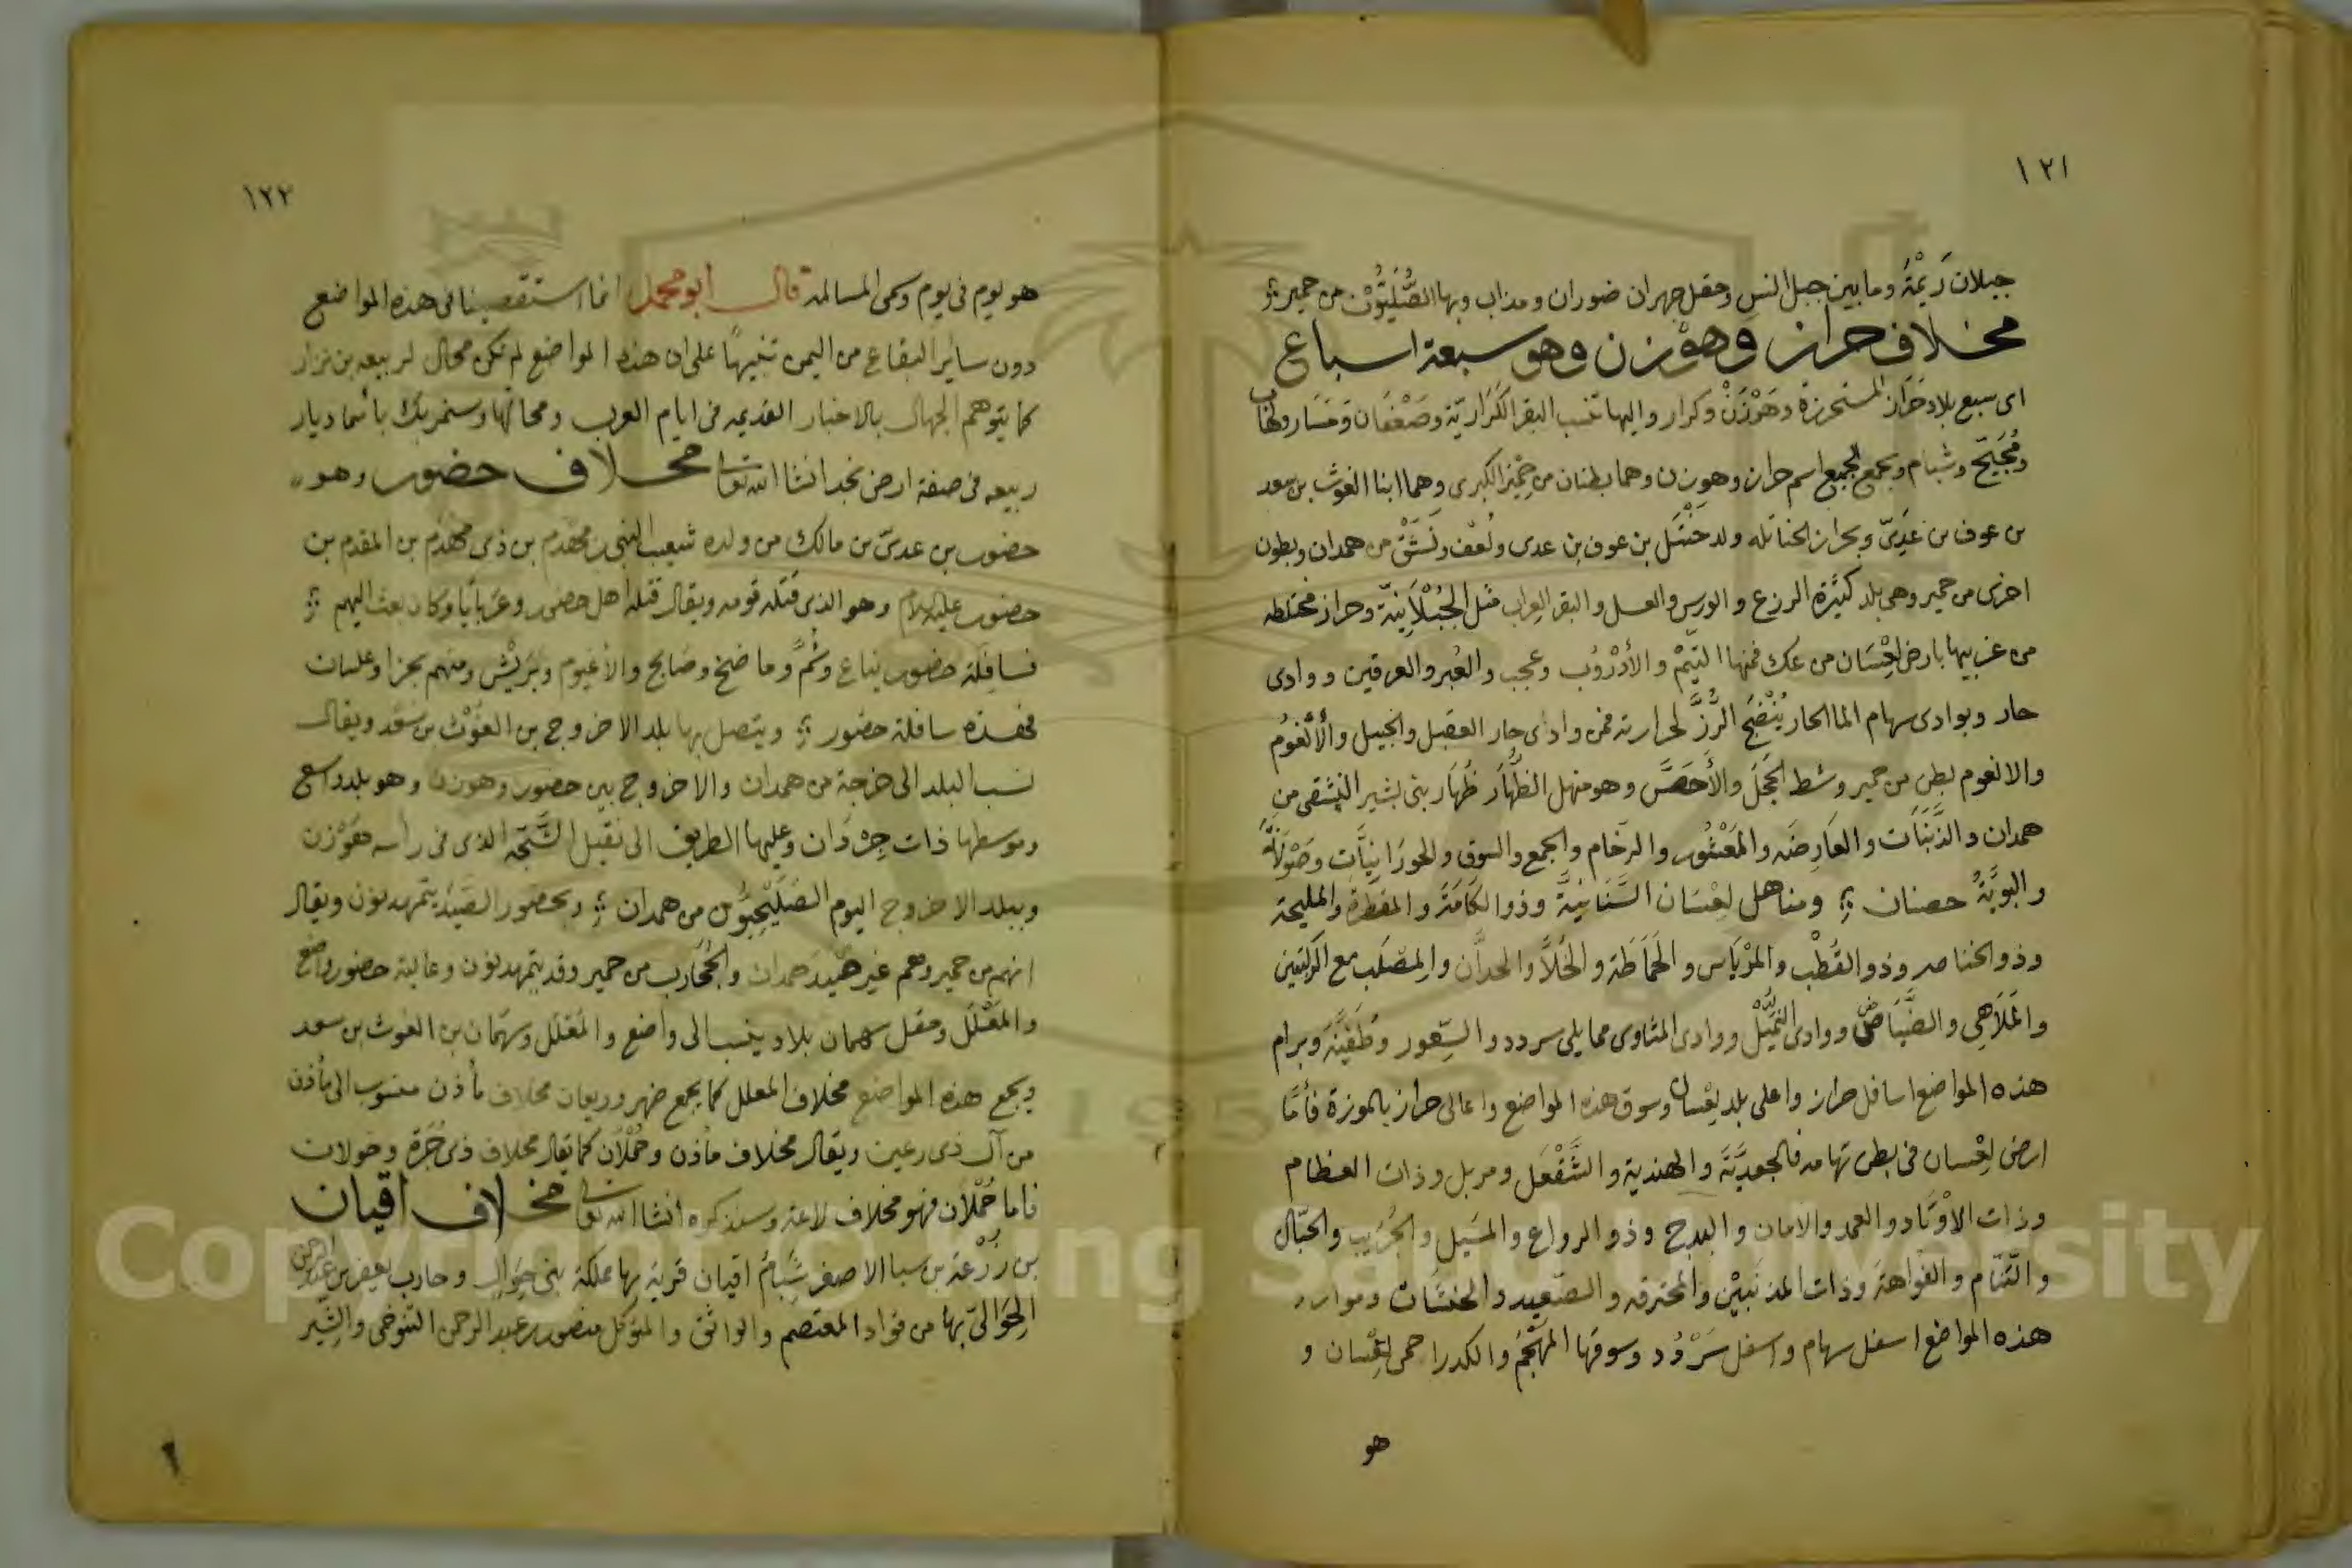 ١٢١
جبلان رَيْمَةَ وما بين جبل انس وحقل جهران ضوران ومذاب وبها الصُّلَيْتُوْن من حمير
مخلاف حراز وهوزن وهو سبعة اسباع
اى سبع بلاد حَرَاز المستحرزة وهَوْزَنْ وكرار واليها تنسب البقر الكَرَارِيّة وصَعْفَان ومَسَار ولهاب
ومُجَيِّح وشبام ويجمع الجميع اسم حراز وهوزن وهما بطنان من حِمْيَر الكبرى وهما ابنا الغوث بن سعد
بن عوف بن عَدِىّ وبحراز الخناتله ولد خَنْتَل بن عوف بن عدى ولَعف ونَشَقْ من همدان وبطون
اخرى من حمير وهى بلد كثيرة الزرع والورس والعسل والبقر العِراب مثل الجُبْلَانِيَّة وحراز مختلطه
من غربيها بارض لِعْسَان من عك فمنها التَيْم والأدْرُوُب وعجب والعُبر والعرقين ووادى
حار وبوادى سهام الما الحار يُنْضَج الرُّزّ لحرارته فمن وادى حار العقبل والجبيل والأنْغُوُم
والانعوم بطن من حمير وشط الحَجَل والأحَصّ وهو منهل الظُّهَار ظُهَار بنى بشير النشقى من
همدان والذَّنَبَات والعَارِضَه والمَعْشُور والرخام والجمع والسوق والحورَانِيَات وصَوْلَة
والبويَّة حصنان ومناهل لِعْسَان السَّنَانِيَّة وذو الكَامَة والمغطرة والمليحة
وذو الخناصر وذو القُطْب والمرْيَاس والحَمَاطَة والخَلاَّ والحدَّان والمصَلَب مع الركبتين
والمَلَاهِى والضِيَاض ووادى الثُمَيْل ووادى المثاوى مما يلى سردد والسِّعور وطَفِيَّة وبرام
هذه المواضع اسافل حراز واعلى بلد لِعْسان وسوق هذه المواضع واعالى حراز بالموزة فأمَّا
ارض لِعْسان فى بطن تهامه فالجعديَّة والهندية والتَّفْعَل ومربل وذات العظام
وذات الأوْتَاد والعمد والامان والبدح وذو الرواع والمسَيل والجُرَيب والحبَّال
والتَنَام والفَوَاهة وذات المذنَبَيْن والمخترقه والصَعيد والخنشات وموارد
هذه المواضع اسفل سهام واسفل سَرْدُد وسوقها المهْجَم والكدرا حمى لِعْسان و
هو
١٢٢
هو يوم فى يوم وحى المسالمه قال ابو محمد انما استقصينا فى هذه المواضع
دون ساير البقاع من اليمن تنبيهًا على ان هذه المواضع لم تكن محال لربيعه بن نزار
كما يتوهم الجهال بالاخبار القديمه فى ايام العرب ومحالها وستمر بك بأسما ديار
ربيعه فى صفة ارض نجد انشا الله تعالى مخلاف حضور وهو
حضور بن عدىّ بن مالك من ولده شعيب النبى بن مَهْدم بن ذى مَهْدَم بن المقدم بن
حضور عليه السلام وهو الذى قتله قومه ويقال قتله اهل حضور وعَرَبَايَا وكان بعث اليهم
فسافلة حضور يناع وشُمّ وما ضخ وضَابح والأغيوم وبَريْش ومنهم بجرا وعلسان
فهذه سافلة حضور ويتصل بها بلد الاخروج بن الغَوْث بن سَعْد ويقال
نسب البلد الى خرجة من همدان والاخروج بين حضور وهوزن وهو بلد واسع
وموسطها ذات جِرْدَان وعليها الطريق الى نقيل الشَّجَّه الذى فى راسه هَوْزن
وببلد الاخروج اليوم الصُلَيْحِيُّون من همدان وبحضور الصَيَد يتهمدنون ويقال
انهم من حمير وهم غير هَيَد همدان والجُحَارب من حمير وقد يتهمدنون وعالية حضور واضع
والمَعْلَل وحقل سهمان بلاد ينسب الى واضع والمَعْلَل وسَهْمَان بن الغوث بن سعد
ويجمع هذه المواضع مخلاف المعلل كما يجمع ضهر وريعان مخلاف مأذن منسوب الى مأذن
من آل ذى رعين ويقال مخلاف مأذن وحُمْلَان كما يقال مخلاف ذى جُرَة وخولان
فاما حُمْلَان فهو مخلاف لاعة وسنذكره انشا الله تعالى مخلاف اقيان
بن زُرْعَة بن سبا الاصغر شِبَامُ اقيان قرية بها مملكة بنى حِوَال وحارب يعفر بن عبد الرحمن
الحِوَالىّ بها من قواد المعتصم والواثق والمتوكل منصور بن عبد الرحمن التنوخى والشِّير
Copyright © King Saud University
1957